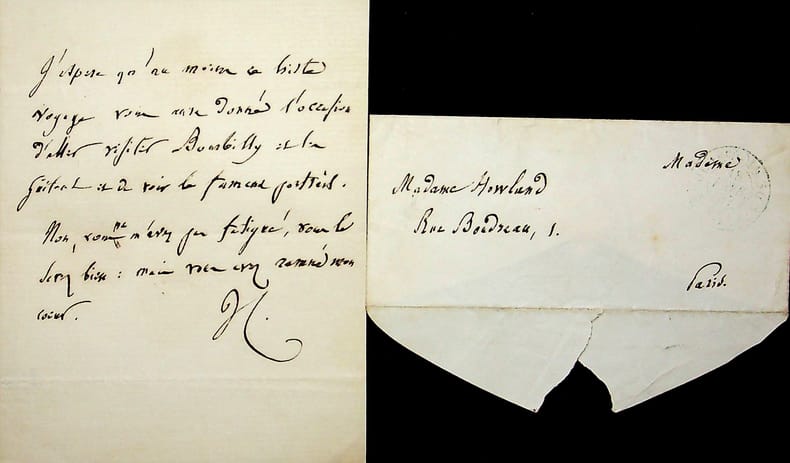 J'espère qu'au moins ce triste
voyage vous aura donné l'occasion
d'aller visiter Bourbilly et les
et de voir le fameux portrait.
Non, vous ne m'avez pas fatigué, vous le
savez bien : mais vous avez ranimé mon
coeur.
Madame
Madame Howland
Rue Boudreau, 1.
Paris.